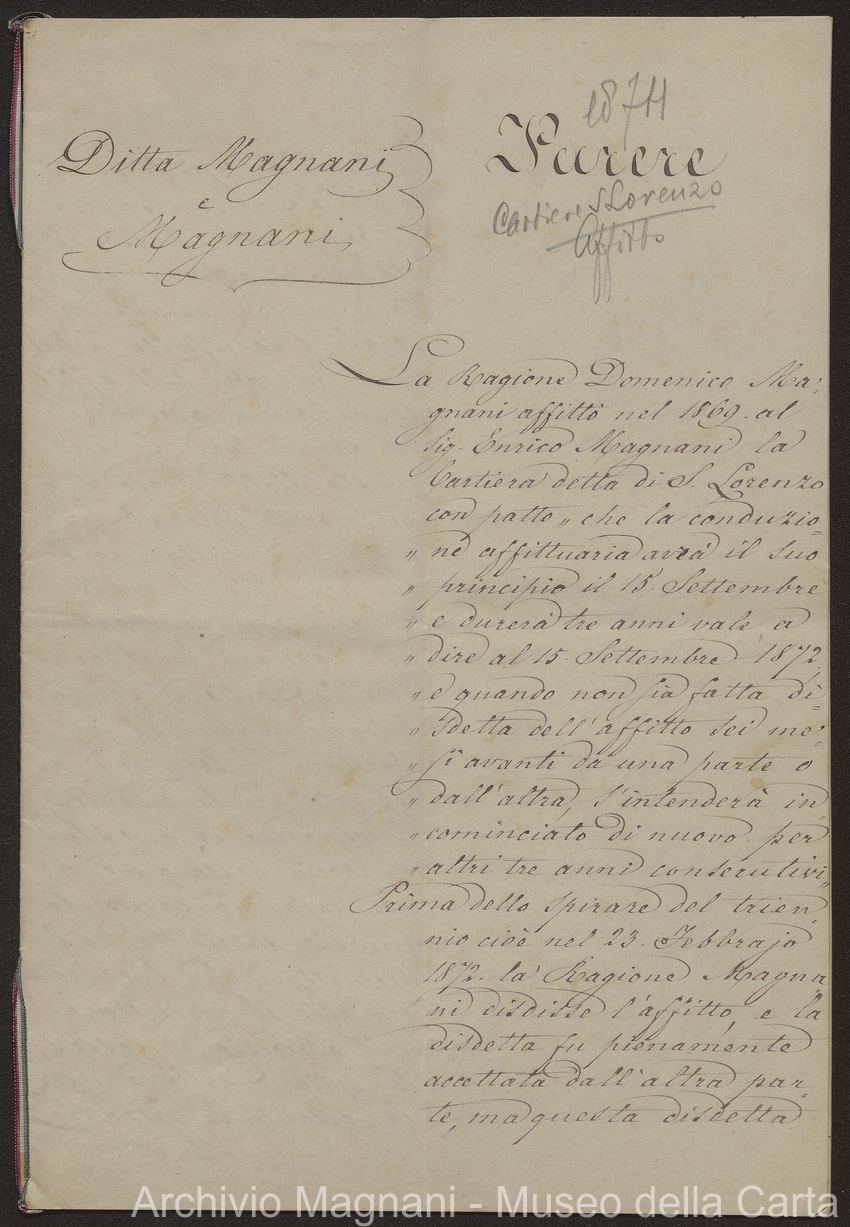 Ditta Magnani
e
Magnani
1874
Parere
Cartiere S Lorenzo
Affitto
La Ragione Domenico Ma=
gnani affittò nel 1869. al
Sig. Enrico Magnani la
Cartiera detta di S. Lorenzo
con patto „ che la conduzio=
„ ne affittuaria avrà il suo
„ principio il 15 Settembre
„ e durerà tre anni vale a
„ dire al 15. Settembre 1872,
„ e quando non sia fatta di=
„ sdetta dell'affitto sei me=
„ si avanti da una parte o
„ dall'altra, s'intenderà in=
„ cominciato di nuovo per
„ altri tre anni consecutivi„
Prima dello spirare del trien=
nio cioè nel 23. Febbrajo
1872. la Ragione Magna
ni disdisse l'affitto, e la
disdetta fu pienamente
accettata dall'altra par=
te, ma questa disdetta
Archivio Magnani - Museo della Carta